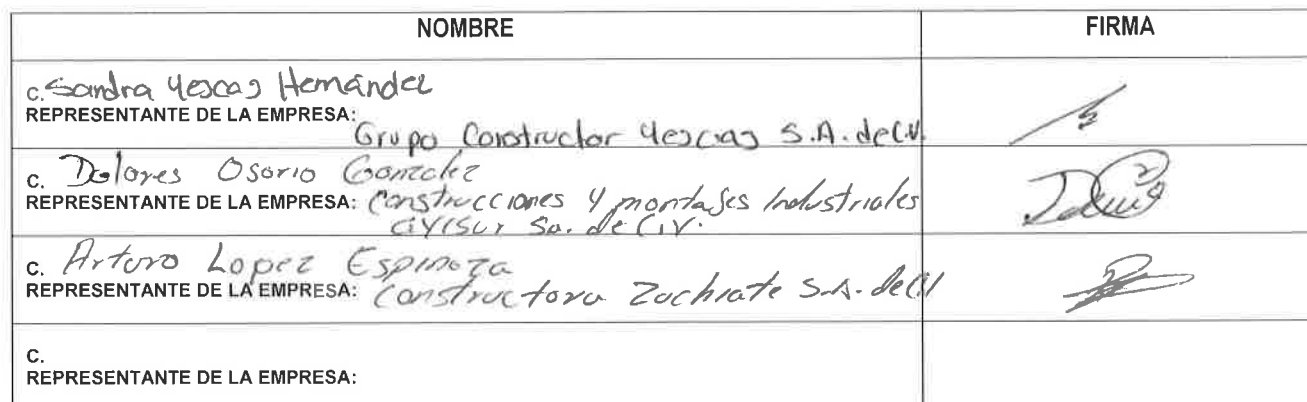 NOMBRE FIRMA
C. Sandra Yescas Hernández
REPRESENTANTE DE LA EMPRESA:
Grupo Constructor Yescas S.A. de C.V.
C. Dolores Osorio Gonzalez
REPRESENTANTE DE LA EMPRESA: Construcciones y montajes Industriales
Sa. de C.V.
C. Arturo Lopez Espinoza
REPRESENTANTE DE LA EMPRESA: Constructora S.A. de CV
C.
REPRESENTANTE DE LA EMPRESA: